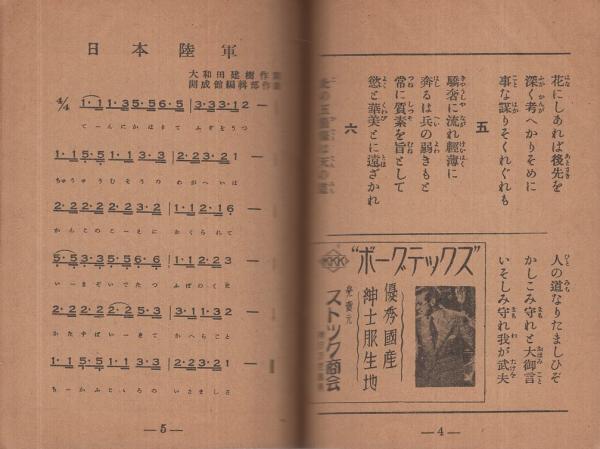 花にしあれば後先を
深く考へかりそめに
事な謀りそくれぐれも
五
驕奢に流れ輕薄に
奔るは兵の弱きもと
常に質素を旨として
慾と華美とに遠ざかれ
六
人の道なりたましひぞ
かしこみ守れと大御言
いそしみ守れ我が武夫
"ボーグテックズ"
優秀國産
紳士服生地
發賣元
ストック商会
—4—
日本陸軍
大和田建樹作歌
開成館編輯部作曲
4/4 1·1 1·3 5·5 6·5 | 3·3 3·1 2 —
てーんにかはりて ふぎをうつ
1·1 5·5 1·1 3·3 | 2·2 3·2 1 —
ちゅうゆうむそうの わがへいは
2·2 2·2 2·2 2·2 | 1·1 2·1 6 —
かんこのこーえに おくられて
5·5 3·5 6·6 5·5 | 1·1 2·2 3 —
いーまぞいでたつ ふぼのくに
2·2 2·2 3·3 2·2 | 1·1 2·1 2 —
かたずばいーきて かへらじと
1·1 5·5 1·1 3·3 | 2·2 3·2 1
ちーかふこころの いさましさ
—5—